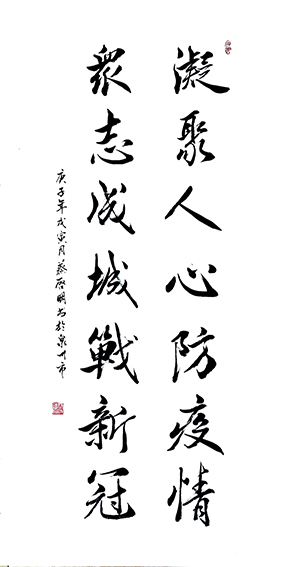 凝聚人心防疫情
眾志成城戰新冠
庚子年戊寅月蔡啓明书於泉州市